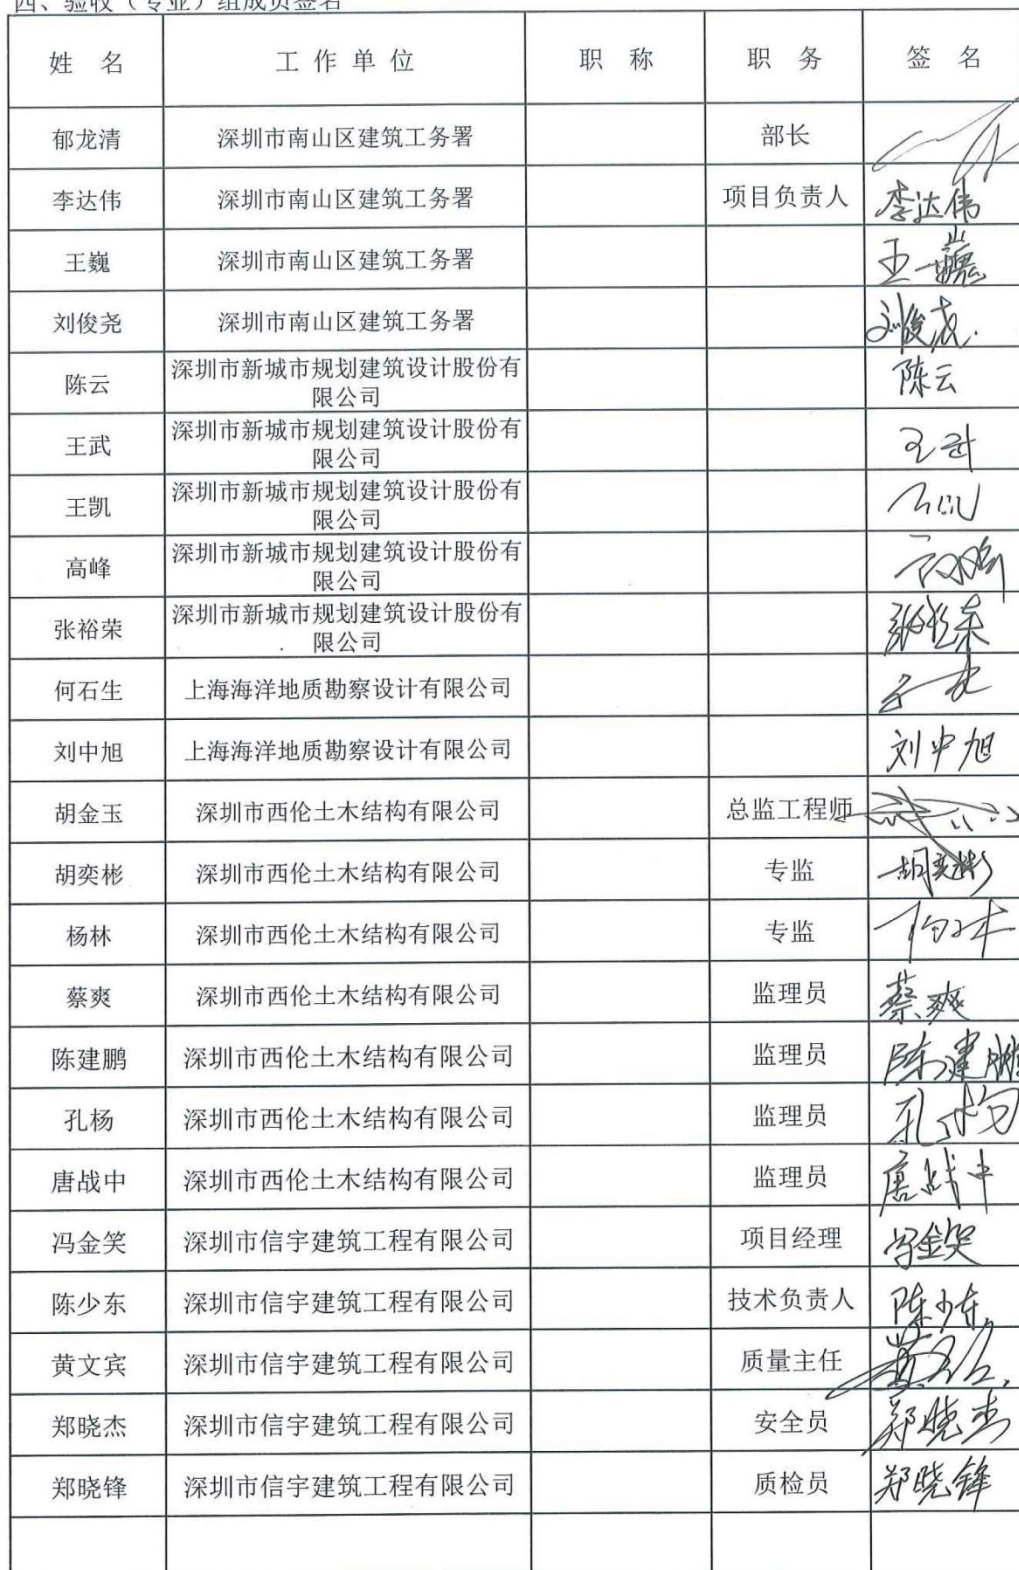 四、验收（专业）组成员签名
姓 名 工 作 单 位 职 称 职 务 签 名
郁龙清 深圳市南山区建筑工务署 部长
李达伟 深圳市南山区建筑工务署 项目负责人 李达伟
王巍 深圳市南山区建筑工务署 王巍
刘俊尧 深圳市南山区建筑工务署 刘俊尧
陈云 深圳市新城市规划建筑设计股份有 陈云
限公司
王武 深圳市新城市规划建筑设计股份有 王武
限公司
王凯 深圳市新城市规划建筑设计股份有
限公司
高峰 深圳市新城市规划建筑设计股份有
限公司
张裕荣 深圳市新城市规划建筑设计股份有 张裕荣
限公司
何石生 上海海洋地质勘察设计有限公司
刘中旭 上海海洋地质勘察设计有限公司 刘中旭
胡金玉 深圳市西伦土木结构有限公司 总监工程师
胡奕彬 深圳市西伦土木结构有限公司 专监 胡奕彬
杨林 深圳市西伦土木结构有限公司 专监
蔡爽 深圳市西伦土木结构有限公司 监理员 蔡爽
陈建鹏 深圳市西伦土木结构有限公司 监理员 陈建鹏
孔杨 深圳市西伦土木结构有限公司 监理员 孔杨
唐战中 深圳市西伦土木结构有限公司 监理员 唐战中
冯金笑 深圳市信宇建筑工程有限公司 项目经理 冯金笑
陈少东 深圳市信宇建筑工程有限公司 技术负责人 陈少东
黄文宾 深圳市信宇建筑工程有限公司 质量主任
郑晓杰 深圳市信宇建筑工程有限公司 安全员 郑晓杰
郑晓锋 深圳市信宇建筑工程有限公司 质检员 郑晓锋